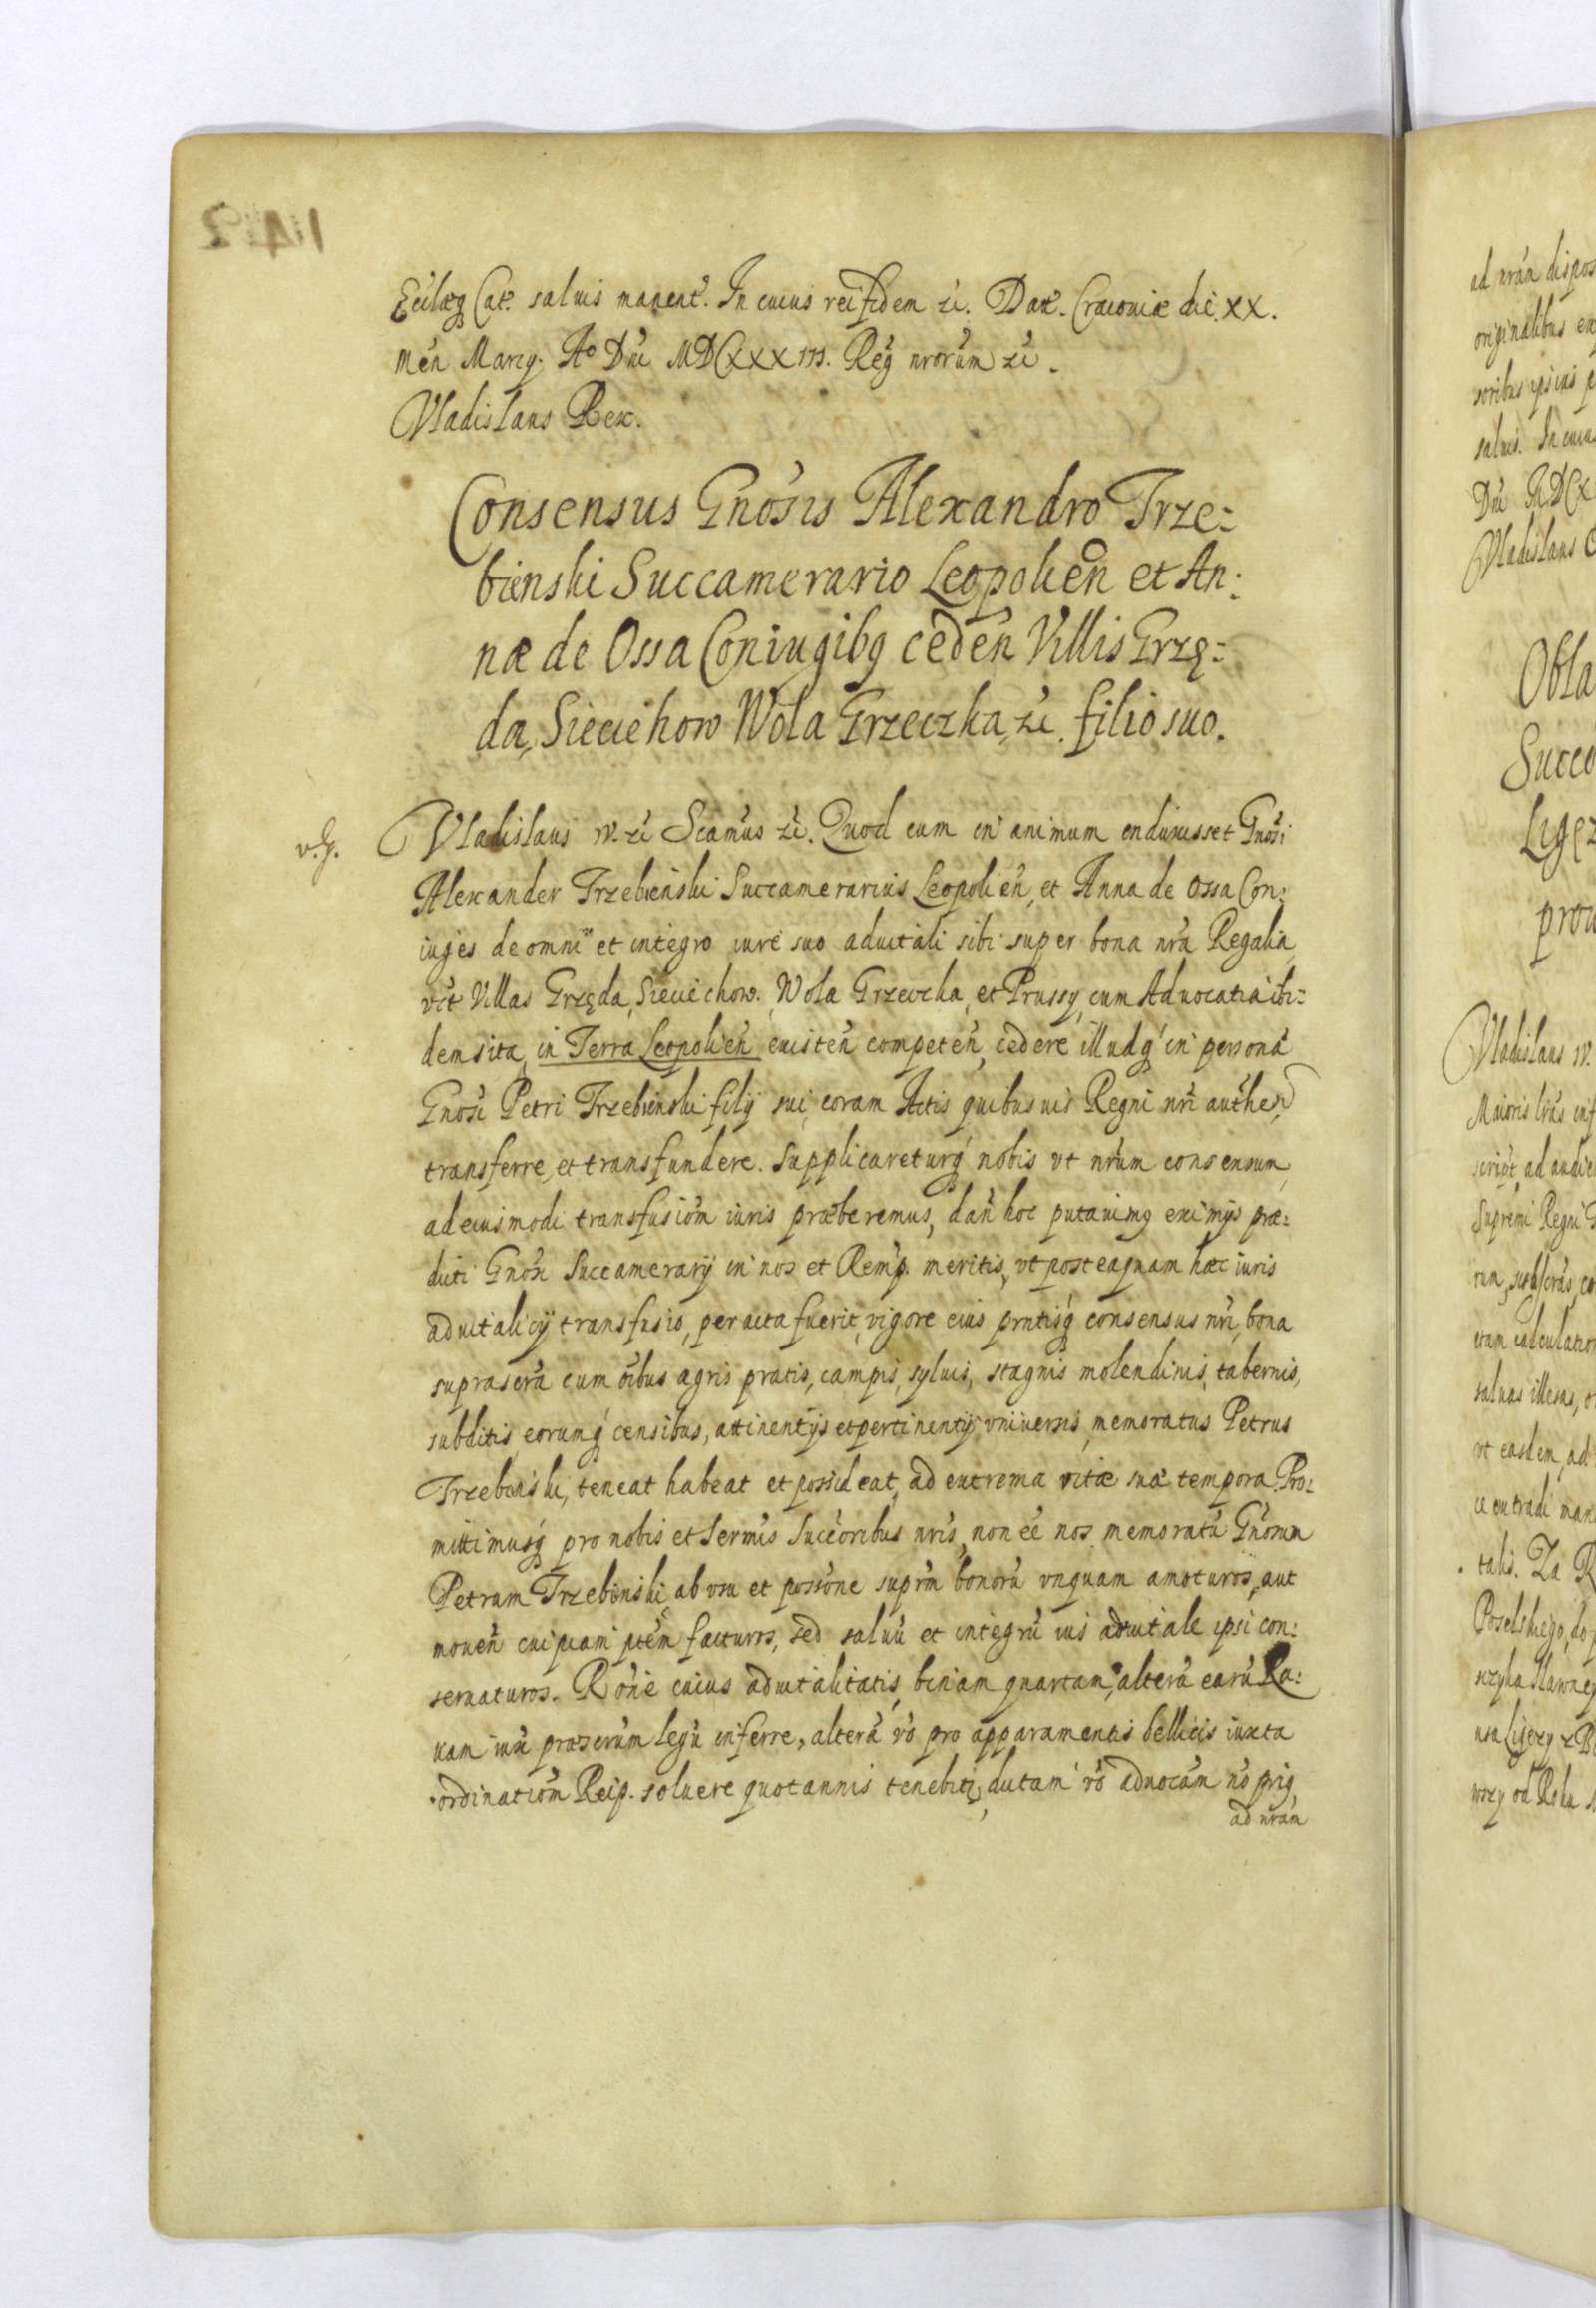 Ecclaeq Cat. saluis manent. In cuius rei fidem zc. Dat. Cracouiae die XX.
Men Marcy. Ao Dni MDCXXXIII. Reg nrorum zc.
Vladislaus Rex.
Consensus Gnosis Alexandro Trze:
bienski Succamerario Leopolien et An:
nae de Ossa Coniugibq ceden Villis Grzę:
da, Sieciehow Wola Grzeczka, zc. filio suo.
v. g.
Vladislaus IV. zc Scamus zc. Quod cum in animum enduxisset Gnosi
Alexander Trzebienski Succamerarius Leopolien, et Anna de Ossa Con:
iuges de omni et integro iure suo aduitali sibi super bona nra Regalia,
vct Villas Grzęda, Sieciechow. Wola Grzeczka, et Prussy, cum Aduocatia ibi:
dem sita, in Terra Leopolien existen competen, cedere illudq in persona
Gnosi Petri Trzebienski filij sui, coram Actis quibusuis Regni nri authen
transferre, et transfundere. Supplicareturq nobis vt nrum consensum,
ad eiusmodi transfusiom iuris praeberemus, dan hoc putauimq eximijs prae:
dicti Gnosi Succamerarij in nos et Remp. meritis, vt posteaquam haec iuris
aduitalicij transfusio, peracta fuerit, vigore eius prntisq consensus nri, bona
suprascra cum oibus agris pratis, campis, syluis, stagnis molendinis, tabernis,
subditis eorumq censibus, attinentijs et pertinentijs vniuersis, memoratus Petrus
Trzebinski, teneat habeat et possideat, ad extrema vitae suae tempora. Pro:
mittimusq pro nobis et Sermis Succoribus nris, non ee nos memoratu Gnosum
Petrum Trzebinski, ab vsu et possone suprm bonoru vnquam amoturos, aut
mouen cuipiam ptem facturos, sed saluu et integru ius aduitale ipsi con:
seruaturos. Rone cuius aduitalitatis, binam quartam, altera earu Ra:
uam iux praescrum legu inferre, altera vo pro apparamentis bellicis iuxta
ordinatiom Reip. soluere quotannis tenebitq, dictam vo aduocam no priq,
ad nram